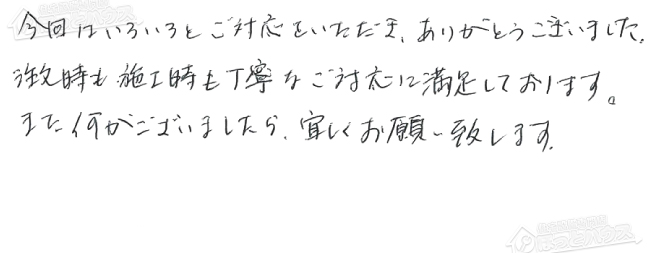 今回はいろいろとご対応をいただき、ありがとうございました。
注文時も施工時も丁寧なご対応に満足しております。
また何かございましたら、宜しくお願い致します。